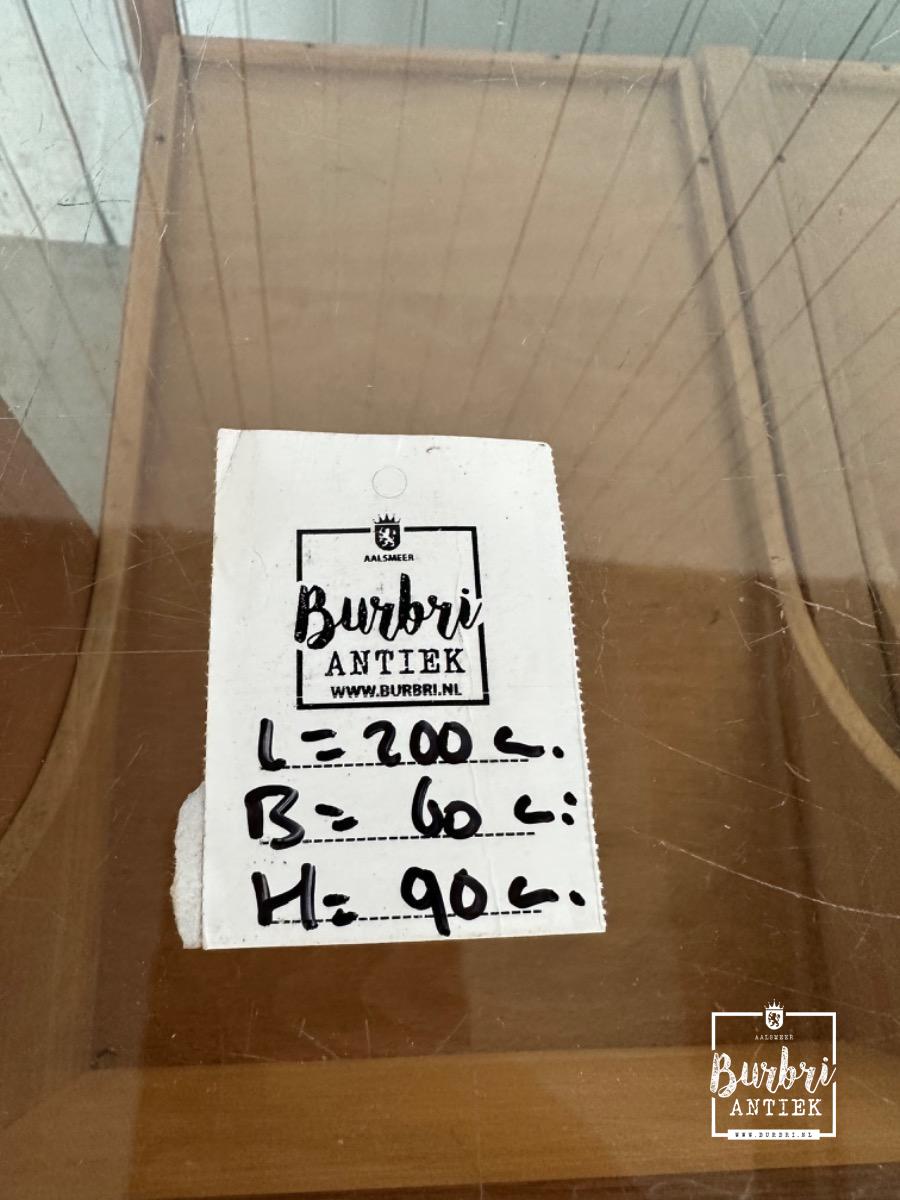 AALSMEER
Burbri
ANTIEK
WWW.BURBRI.NL
L = 200 c.
B = 60 c:
H = 90 c.
AALSMEER
Burbri
ANTIEK
WWW.BURBRI.NL